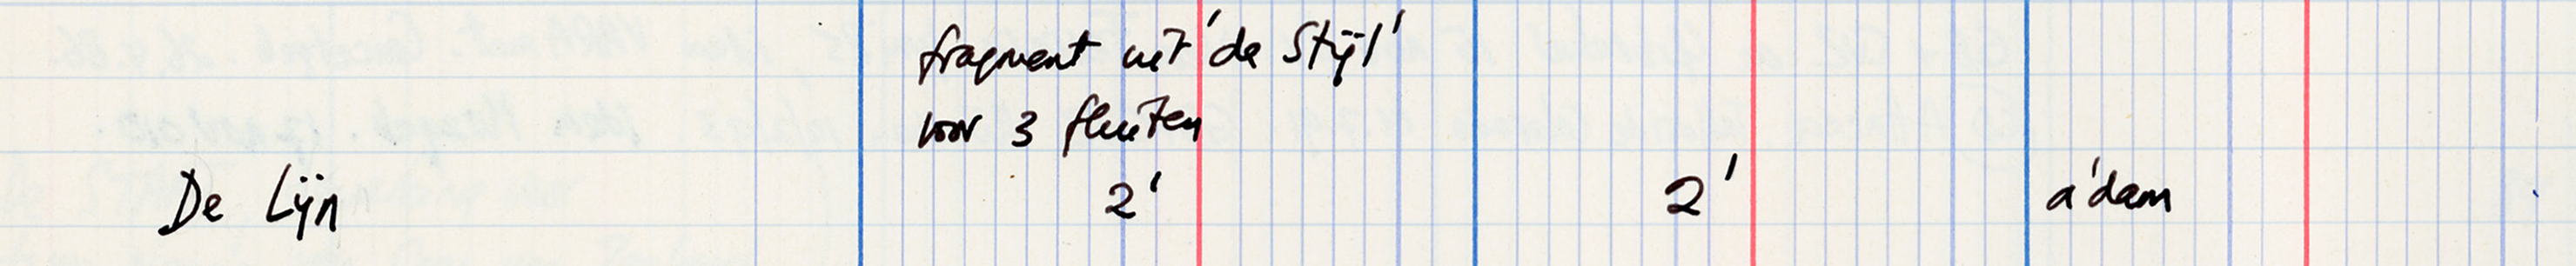 fragment uit 'de Stijl'
voor 3 fluiten
De Lijn 2' 2' a'dam